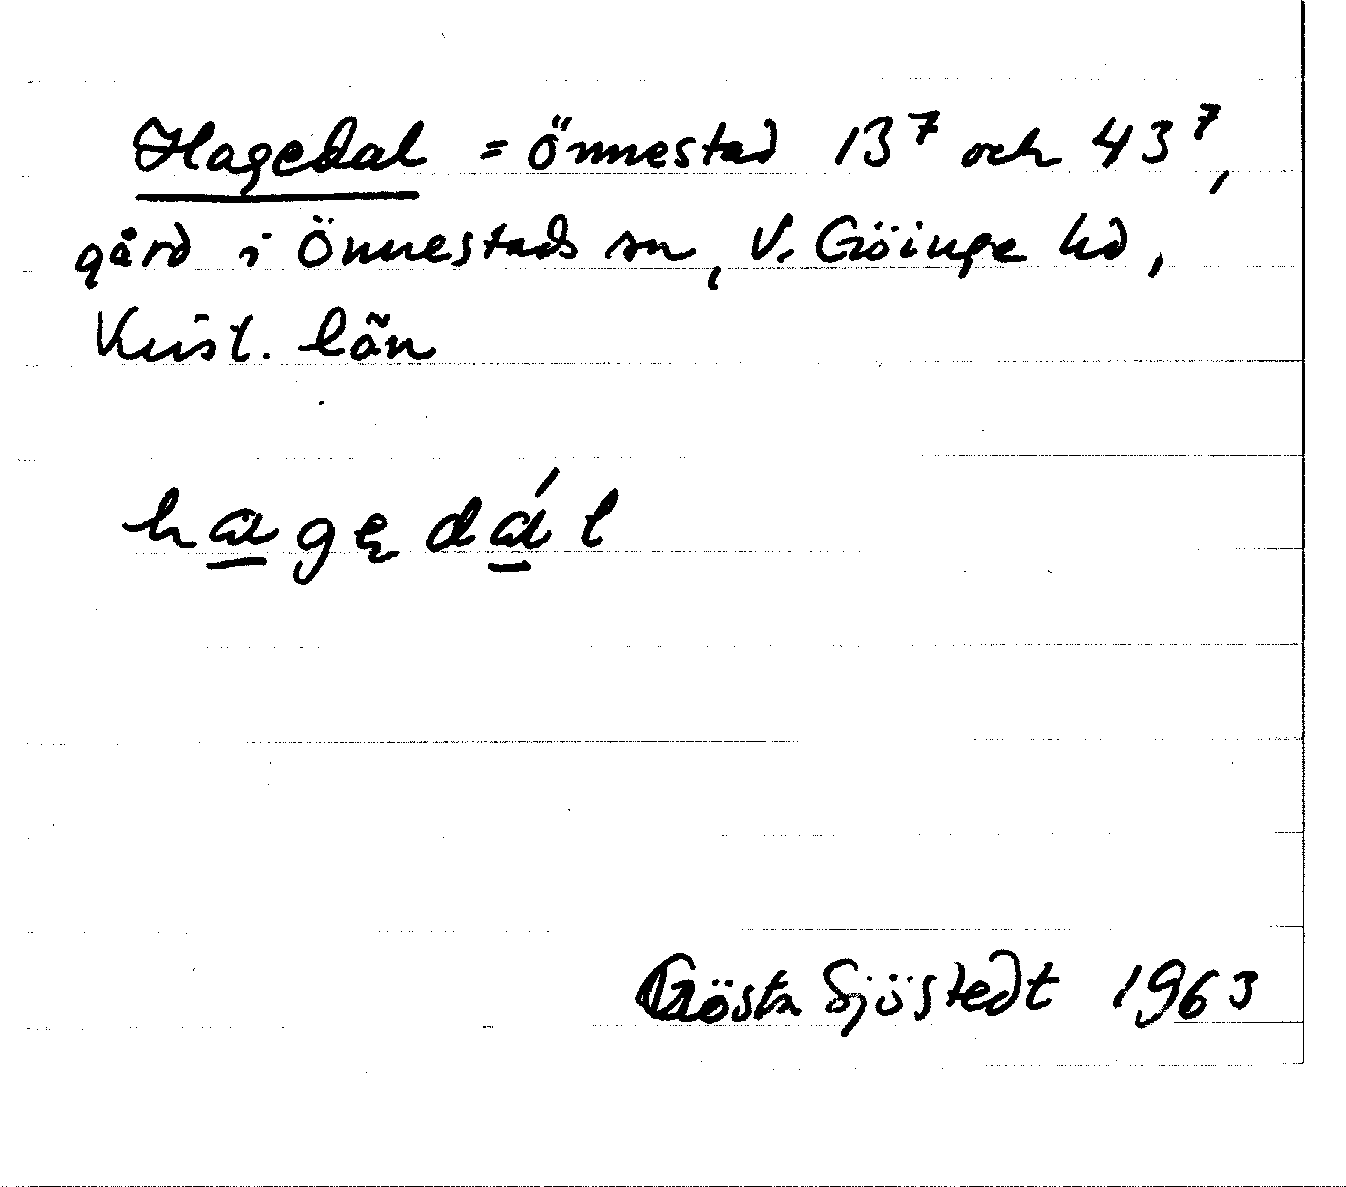 Hagedal = Önnestad 13⁷ och 43⁷,
gård i Önnestads sn, V. Göinge hd,
Krist. län
hagedál
Gösta Sjöstedt 1963